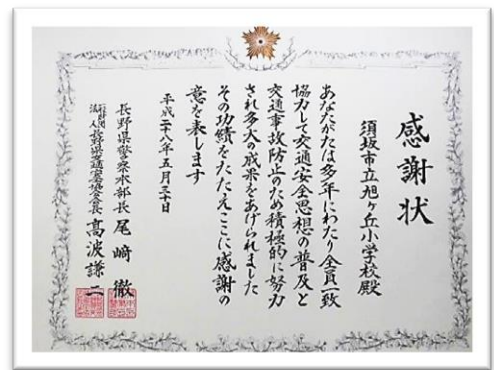 感謝状
須坂市立旭ヶ丘小学校殿
あなたがたは多年にわたり全員一致
協力して交通安全思想の普及と
交通事故防止のため積極的に努力
され多大の成果をあげられました
その功績をたたえここに感謝の
意を表します
平成二十八年五月三十日
長野県警察本部長 尾﨑 徹
一般財団法人長野県交通安全協会会長 高波謙二